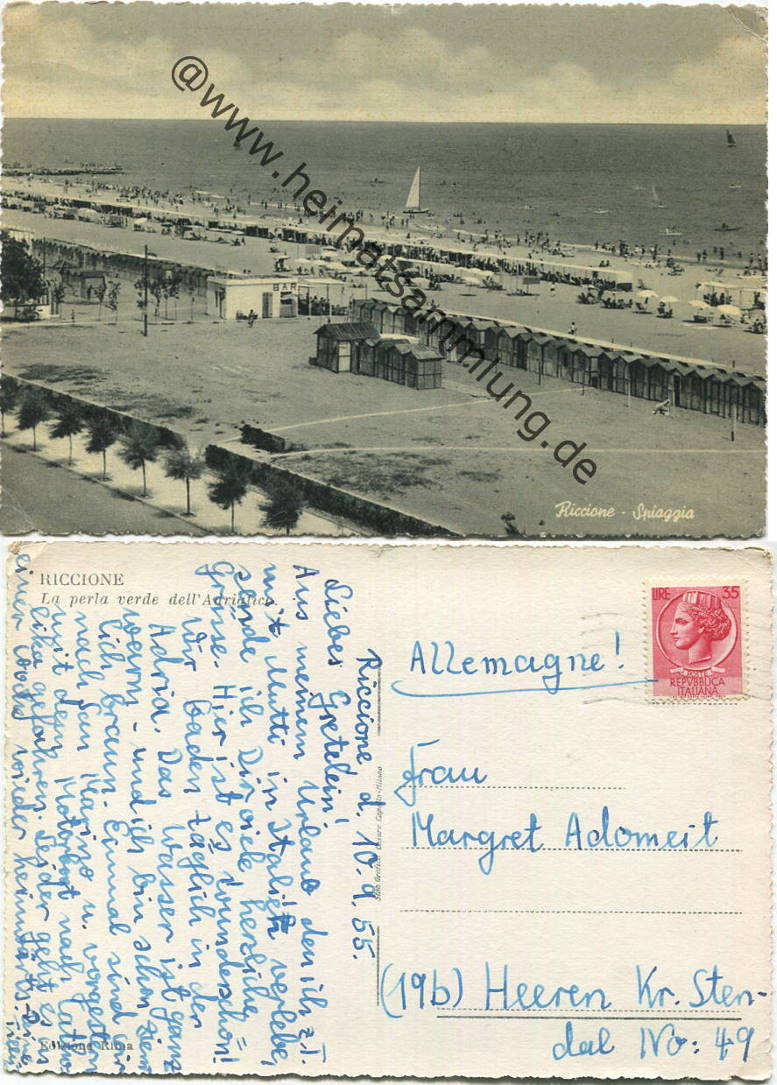 @www.heimatsammlung.de
BAR
Riccione - Spiaggia
RICCIONE
La perla verde dell'Adriatico
Riccione d. 10.9.55.
Liebes Gretelein!
Aus meinem Urlaub den ich z.T.
mit Mutti in Italien verlebe,
sende ich Dir viele herzliche
Grüsse. Hier ist es wunderschön!
Wir baden täglich in der
Adria. Das Wasser ist ganz
warm - und ich bin schon ziem-
lich braun. Einmal sind wir
nach San Marino u. vorgestern
mit dem Motorboot nach Catto-
lika gefahren. Leider geht es in
einer Woche wieder heimwärts.
Edizione Rima
Allemagne!
LIRE 35
POSTE
REPVBBLICA
ITALIANA
Frau
Margret Adomeit
(19b) Heeren Kr. Sten-
dal No: 49